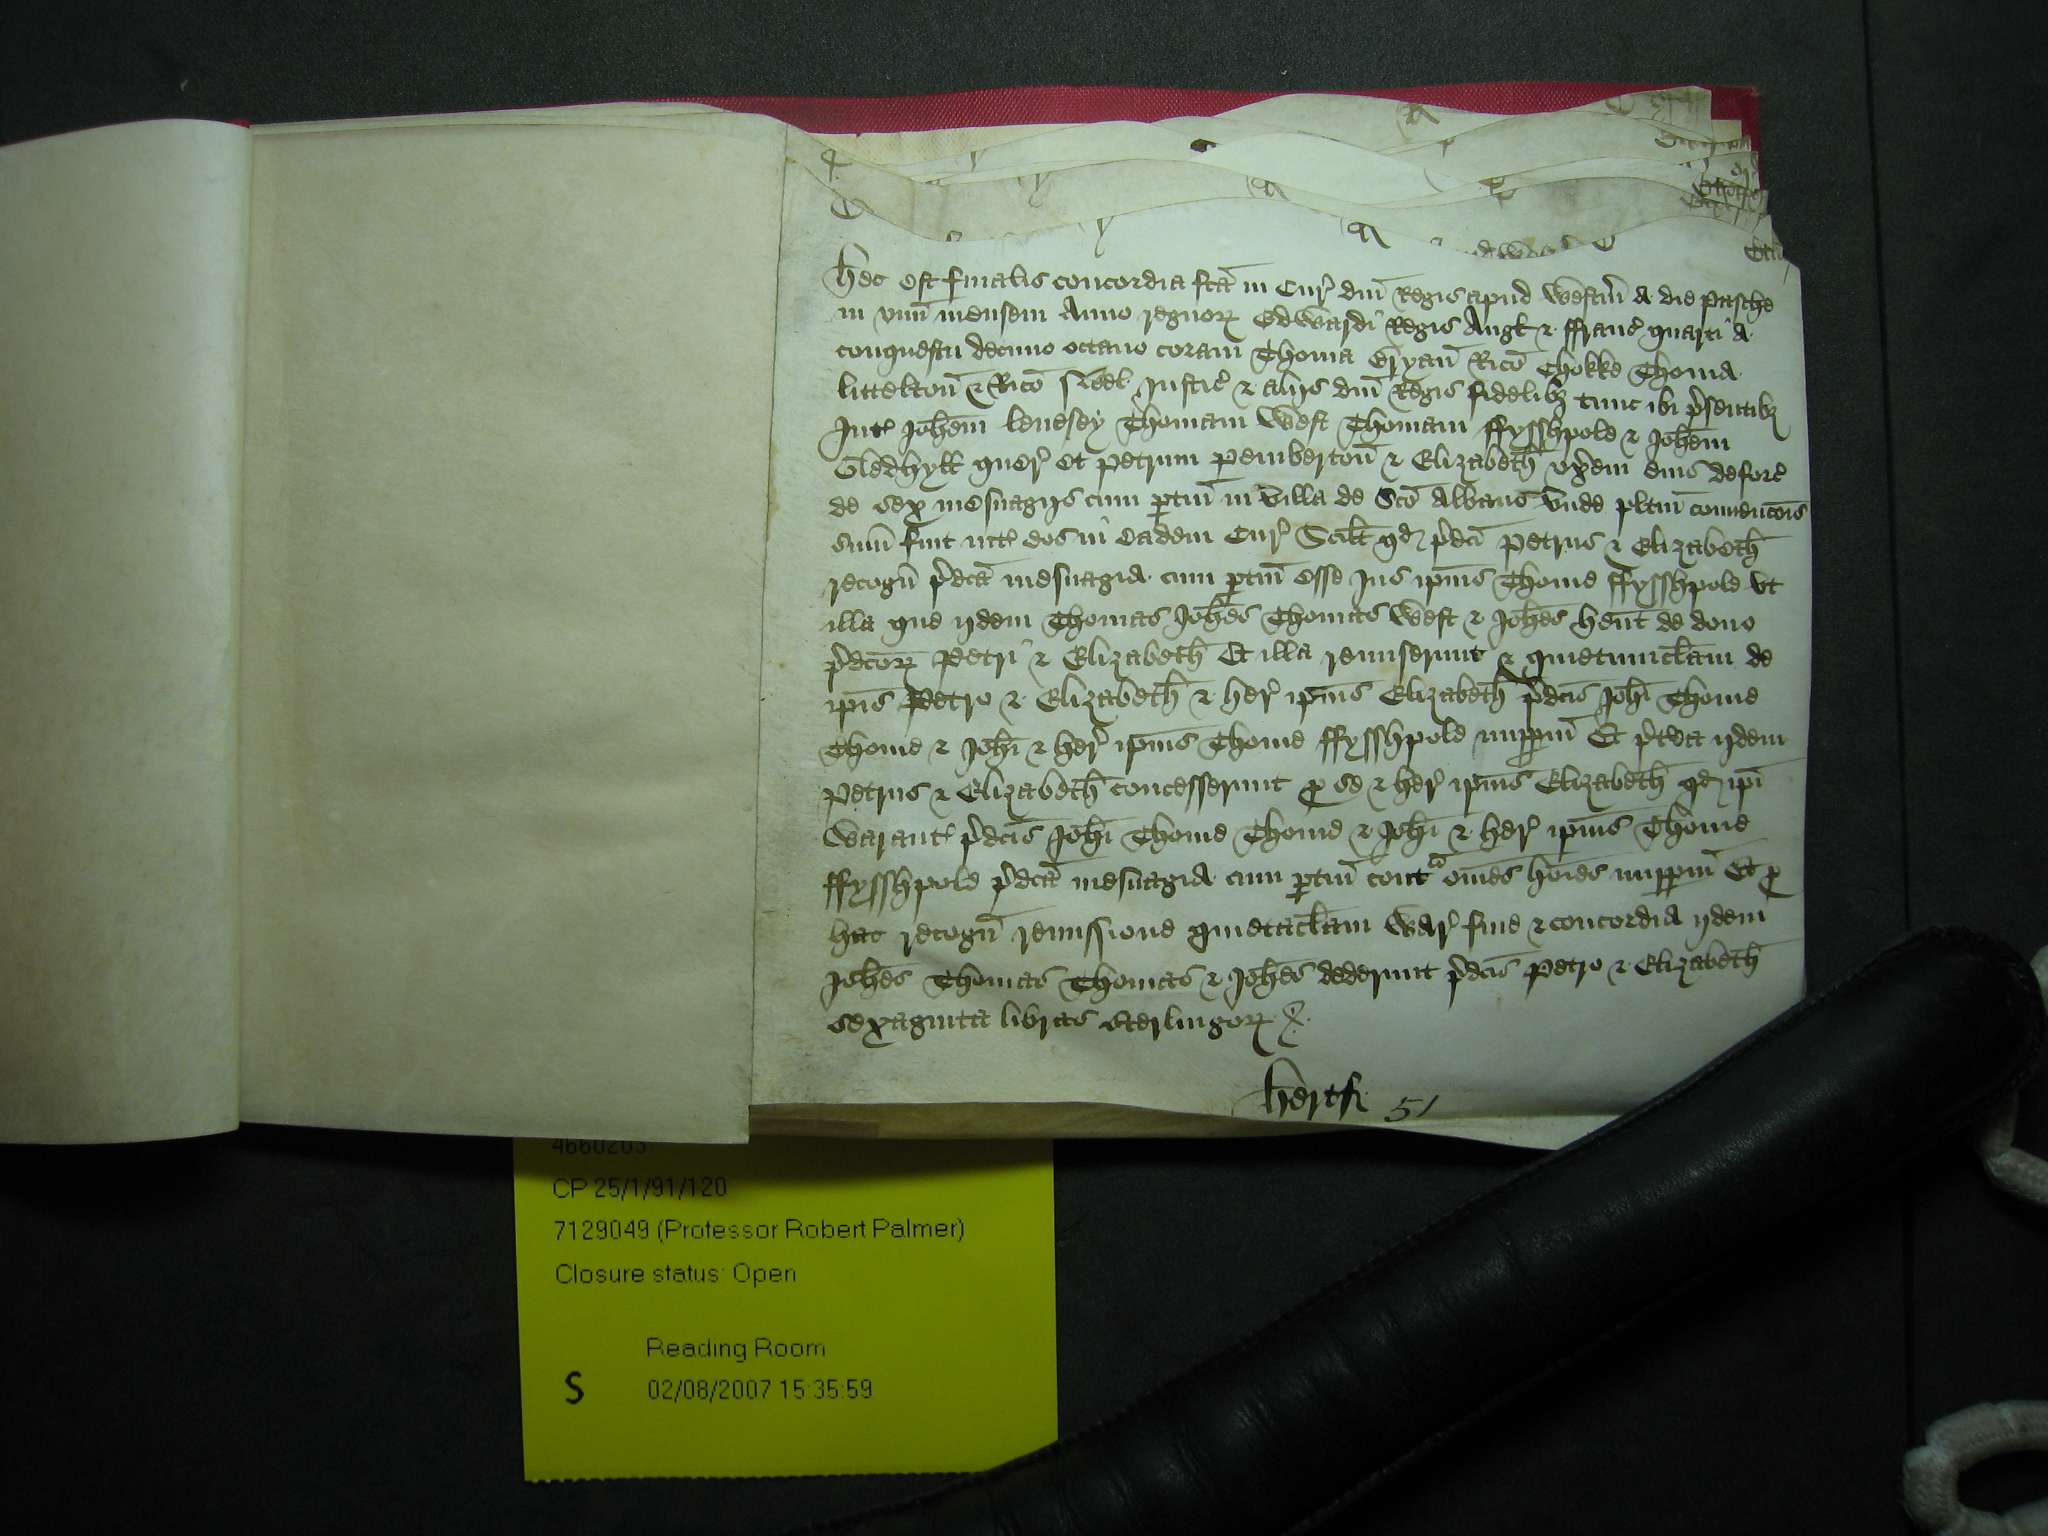 Hec est finalis concordia fcā in Cur' dn̄i Regis apud Westm̄ A die Pasche
in vnū mensem Anno regnoꝝ Edwardi Regis Angl' & ffranc' quarti A
conquestu decimo octauo coram Thoma Bryan Ricō Chokke Thoma
littelton̄ & Ricō Neel Justic' & alijs dn̄i Regis fidelibꝫ tunc ibi p̄sentibꝫ
Int' Joh̄em leuesey Thomam West Thomam ffysshpole & Joh̄em
Gledhyll quer' Et Petrum Pemberton̄ & Elizabeth̄ vx̄em eius deforc'
de sex mesuagijs cum ptin̄ in villa de Scō Albano vnde pl̄itum conuenc̄ōis
sum̄ fuit int' eos in eadem Cur' Scil't qd' p̄dc̄i Petrus & Elizabeth̄
recogn̄ p̄dc̄a mesuagia cum ptin̄ esse Jus ip̄ius Thome ffysshpole vt
illa que ijdem Thomas Joh̄es Thomas West & Joh̄es hēnt de dono
p̄dc̄oꝝ Petri & Elizabeth̄ Et illa remiserunt & quietumclam̄ de
ip̄is Petro & Elizabeth̄ & her' ip̄ius Elizabeth̄ p̄dc̄is Joh̄i Thome
Thome & Joh̄i & her' ip̄ius Thome ffysshpole imppm̄ Et p̄t'ea ijdem
Petrus & Elizabeth̄ concesserunt ꝓ se & her' ip̄ius Elizabeth̄ qd' ip̄i
Warant' p̄dc̄is Joh̄i Thome Thome & Joh̄i & her' ip̄ius Thome
ffysshpole p̄dc̄a mesuagia cum ptin̄ contᵃ om̄es hōies imppm̄ Et ꝓ
hac recogn̄ remissione quietaclam̄ War' fine & concordia ijdem
Joh̄es Thomas Thomas & Joh̄es dederunt p̄dc̄is Petro & Elizabeth̄
sexaginta libras sterlingoꝝ
hertf' 51
4660203
CP 25/1/91/120
7129049 (Professor Robert Palmer)
Closure status: Open
Reading Room
S 02/08/2007 15:35:59